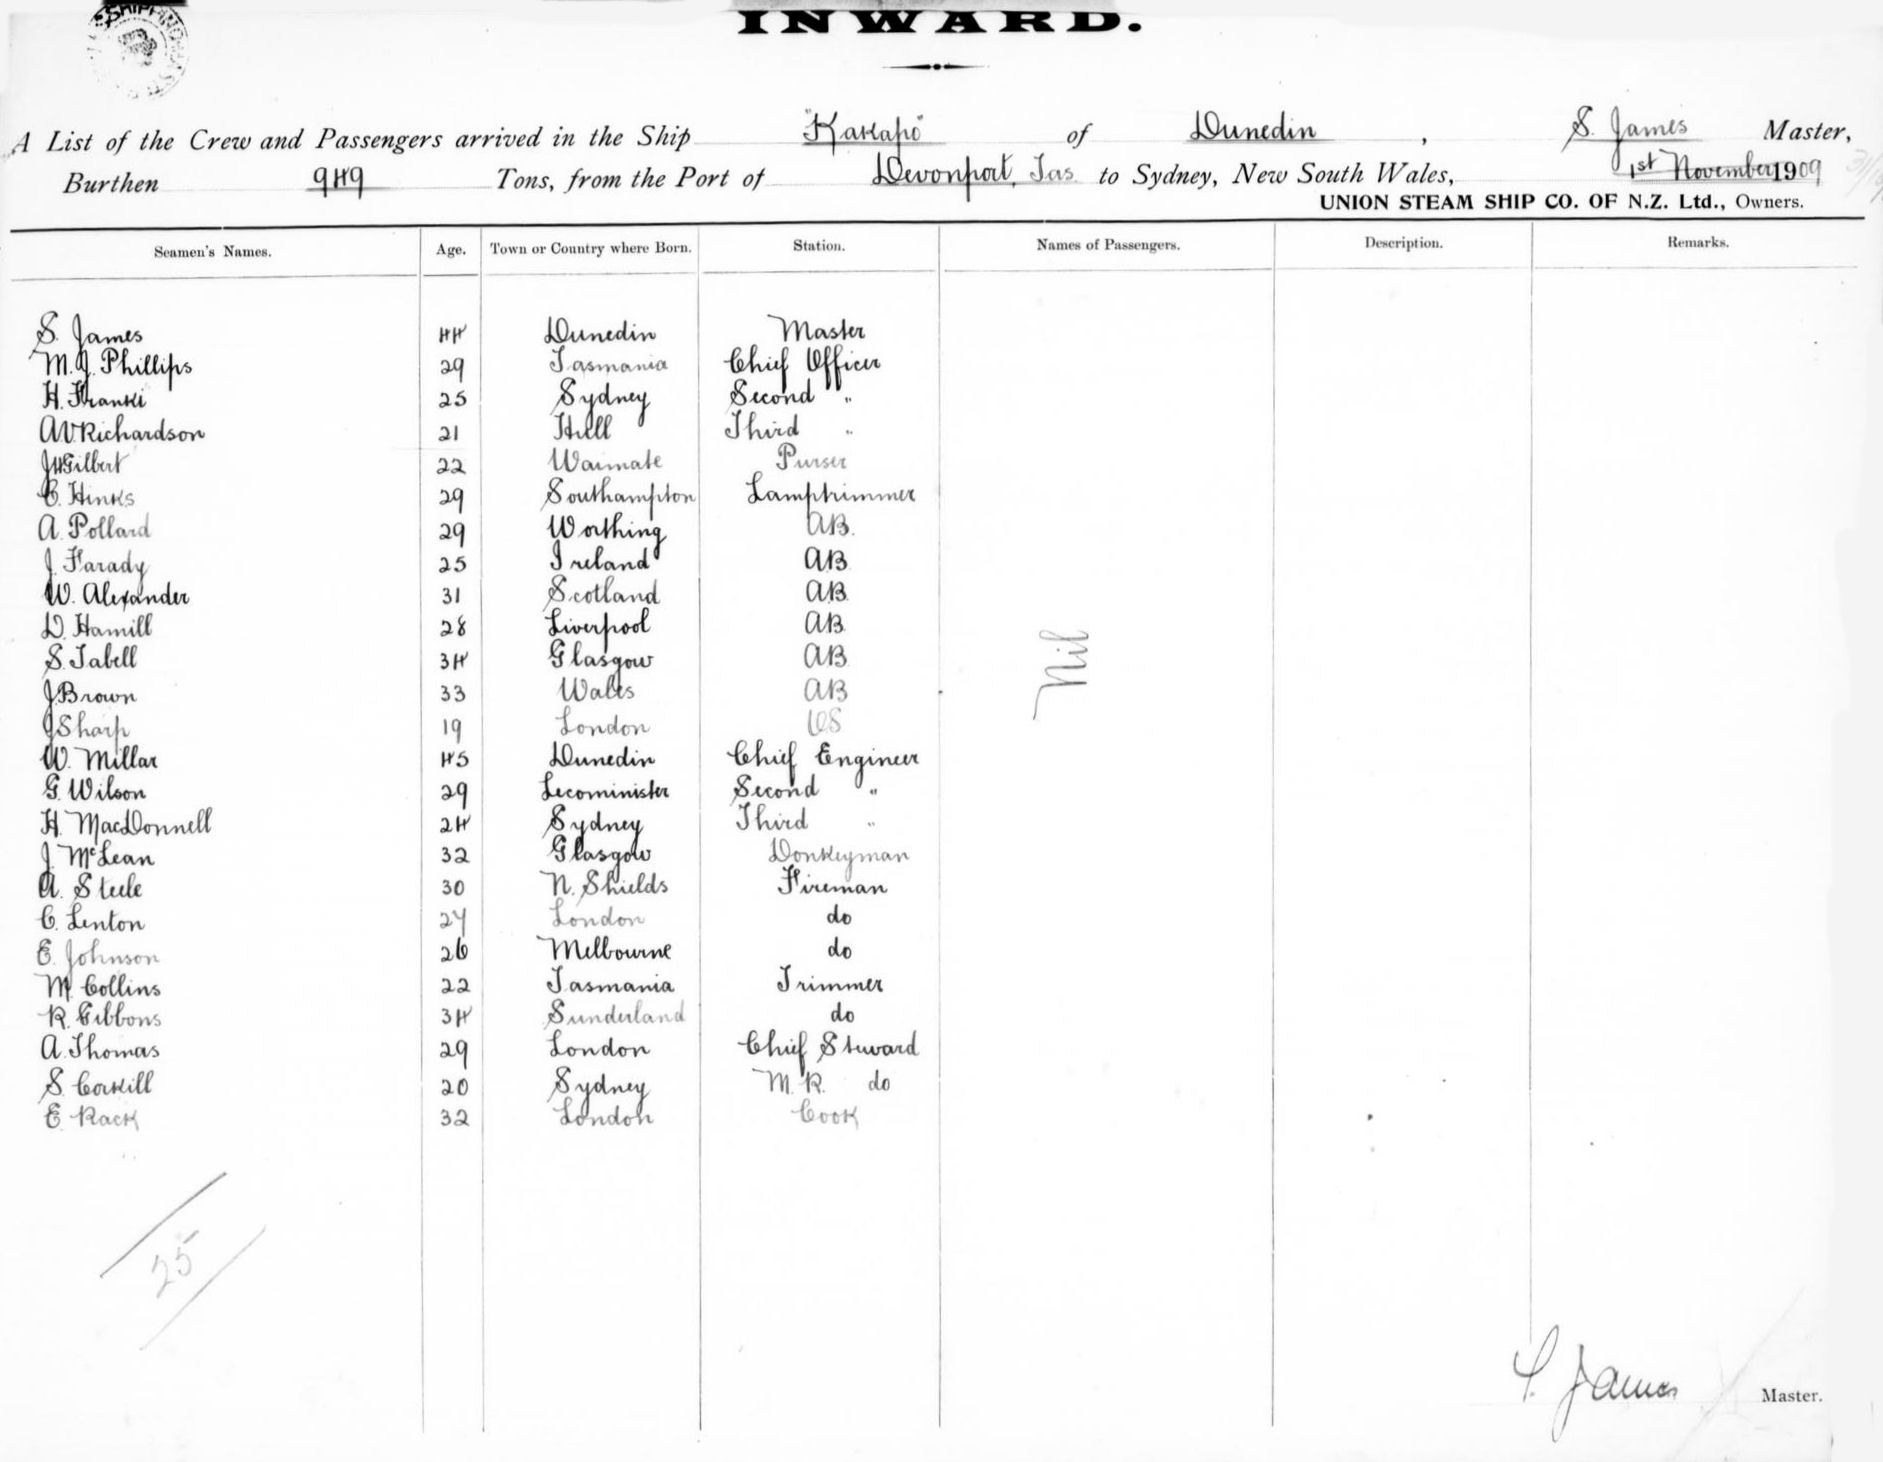 SHIPPING
INWARD.
A List of the Crew and Passengers arrived in the Ship "Kakapo" of Dunedin, S. James Master,
Burthen 949 Tons, from the Port of Devonport, Tas. to Sydney, New South Wales, 1st November 1909
UNION STEAM SHIP CO. OF N.Z. Ltd., Owners.
Seamen's Names. Age. Town or Country where Born. Station. Names of Passengers. Description. Remarks.
S. James 44 Dunedin Master
M.J. Phillips 29 Tasmania Chief Officer
H. Franki 25 Sydney Second "
A V Richardson 21 Hull Third "
J H Gilbert 22 Waimate Purser
C. Hinks 29 Southampton Lamptrimmer
A. Pollard 29 Worthing AB.
J. Farady 25 Ireland AB
W. Alexander 31 Scotland AB
D. Hamill 28 Liverpool AB
S. Tabell 34 Glasgow AB
J Brown 33 Wales AB
J Sharp 19 London OS
W. Millar 45 Dunedin Chief Engineer
G. Wilson 29 Lecominister Second "
H. MacDonnell 24 Sydney Third "
J. McLean 32 Glasgow Donkeyman
A. Steele 30 N. Shields Fireman
C. Lenton 24 London do
E. Johnson 26 Melbourne do
M. Collins 22 Tasmania Trimmer
R. Gibbons 34 Sunderland do
A. Thomas 29 London Chief Steward
S. Corkill 20 Sydney M.R. do
E. Rack 32 London Cook
Nil
25
S. James Master.